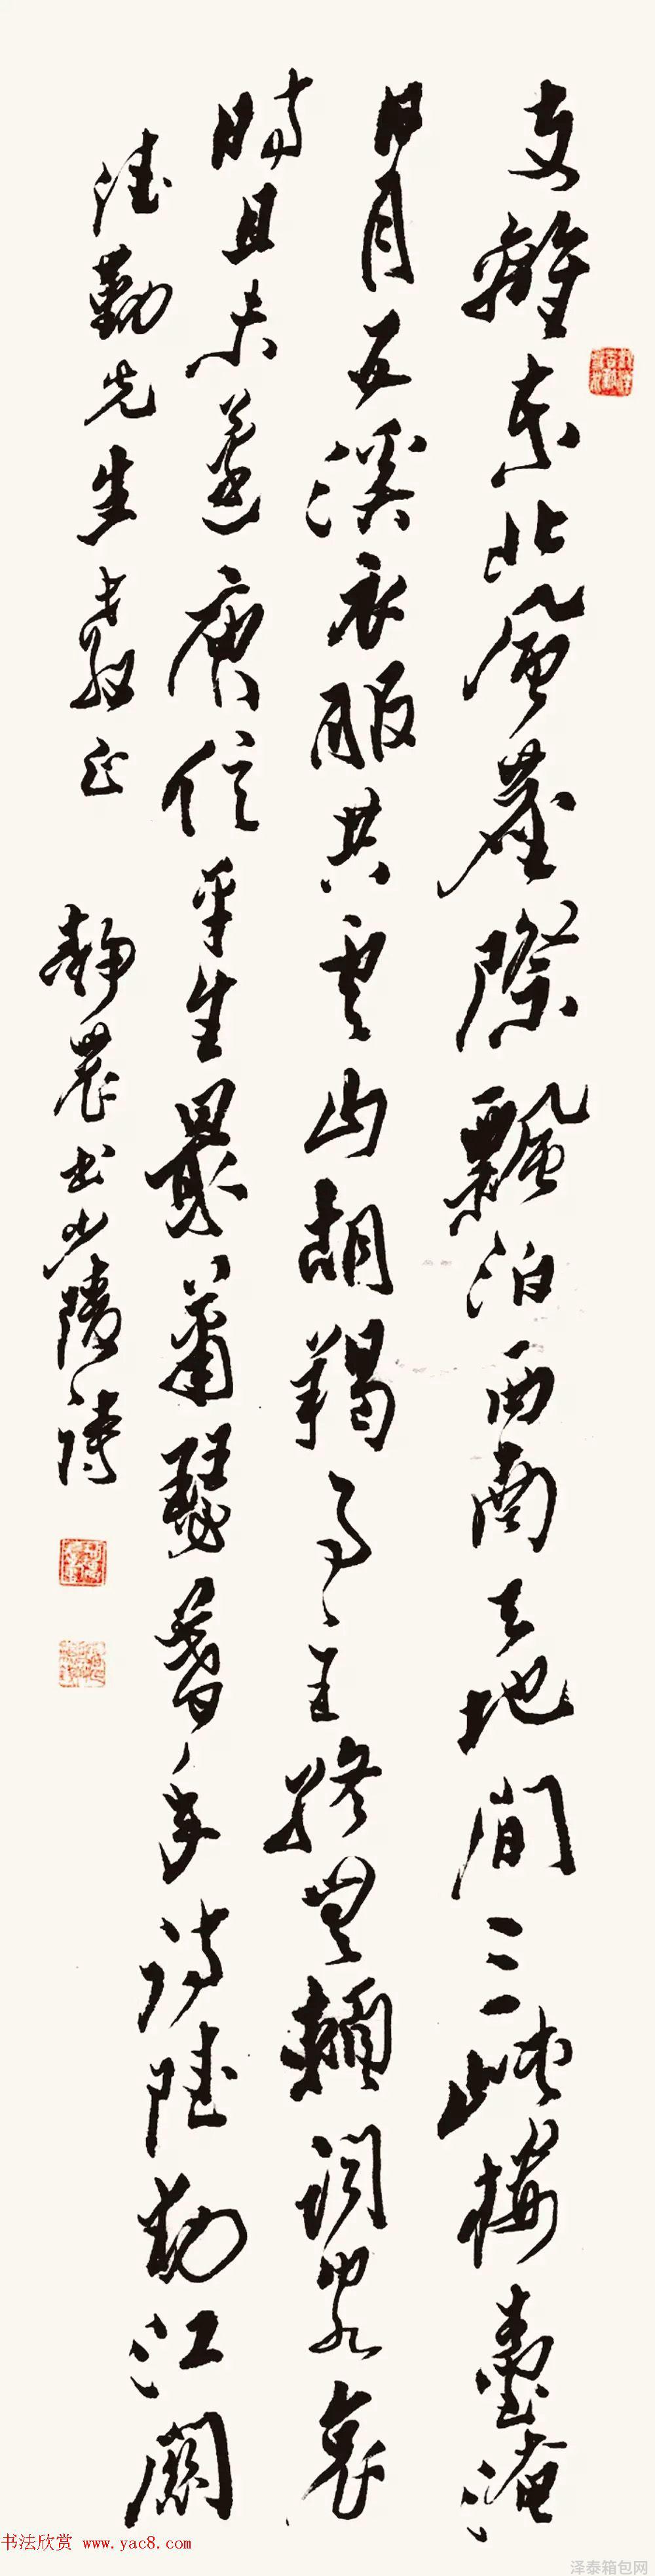 支離東北風塵際飄泊西南天地間三峽樓臺淹
日月五溪衣服共雲山胡羯事主終無賴詞客哀
時且未還庾信平生最蕭瑟暮年詩賦動江關
勤先生教正 靜農書少陵詩
书法欣赏 www.yac8.com
泽泰箱包网